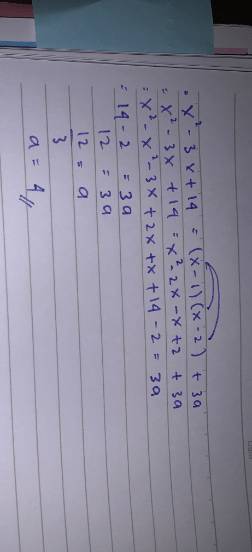 • x² - 3x + 14 = (x - 1)(x - 2) + 3a
= x² - 3x + 14 = x² - 2x - x + 2 + 3a
= x² - x² - 3x + 2x + x + 14 - 2 = 3a
= 14 - 2 = 3a
12 = 3a
12/3 = a
a = 4 //